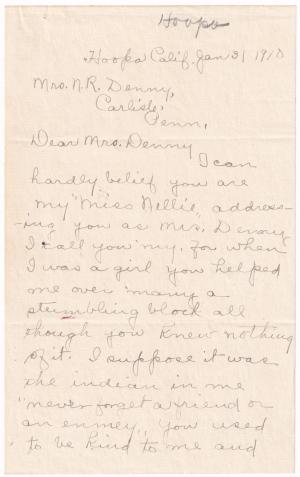 Hoopa
Hoopa Calif. Jan 31 1910
Mrs. N. R. Denny,
Carlisle,
Penn,
Dear Mrs. Denny
I can
hardly belief you are
my "Miss Nellie", address-
-ing you as Mrs. Denny
I call you my. For when
I was a girl you helped
me over many a
stumbling block all
though you knew nothing
of it. I suppose it was
the indian in me
"never forget a friend or
an enmey" you used
to be kind to me and